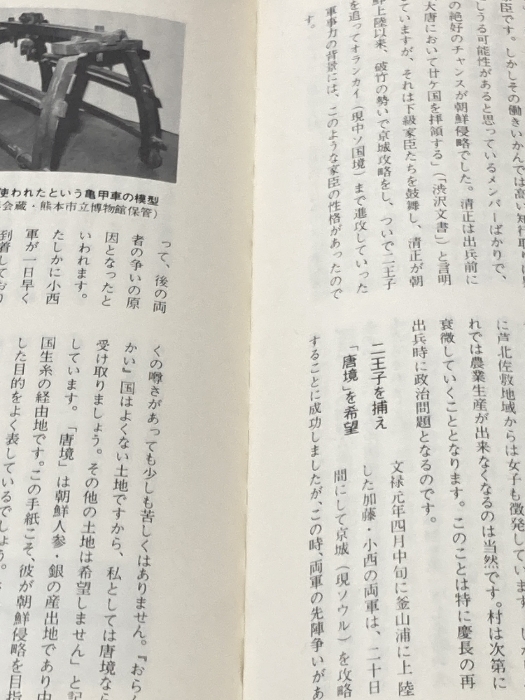 臣です。しかしその働きいかんでは高い知行取り
しうる可能性があると思っているメンバーばかりで、
の絶好のチャンスが朝鮮侵略でした。清正は出兵前に
大唐において廿ケ国を拝領する」(「渋沢文書」)と言明
ていますが、それは下級家臣たちを鼓舞し、清正が朝
鮮上陸以来、破竹の勢いで京城攻略をし、ついで二王子
を追ってオランカイ(現中ソ国境)まで進攻していった
軍事力の背景には、このような家臣の性格があったので
す。
に芦北佐敷地域からは女子も徴発しています。
れでは農業生産が出来なくなるのは当然です。村は次第に
衰微していくこととなります。このことは特に慶長の再
出兵時に政治問題となるのです。
二王子を捕え
「唐境」を希望
文禄元年四月中旬に釜山浦に上陸
した加藤・小西の両軍は、二十日
間にして京城(現ソウル)を攻略
することに成功しましたが、この時、両軍の先陣争いがあ
使われたという亀甲車の模型
会蔵・熊本市立博物館保管)
って、後の両
者の争いの原
因となったと
いわれます。
たしかに小西
軍が一日早く
到着しており
くの噂さがあっても少しも苦しくはありません。『おらん
かい』国はよくない土地ですから、私としては唐境なら
受け取りましょう。その他の土地は希望しません」と記
しています。「唐境」は朝鮮人参・銀の産出地であり中
国生糸の経由地です。この手紙こそ、彼が朝鮮侵略を目指
した目的をよく表しているでしょう。